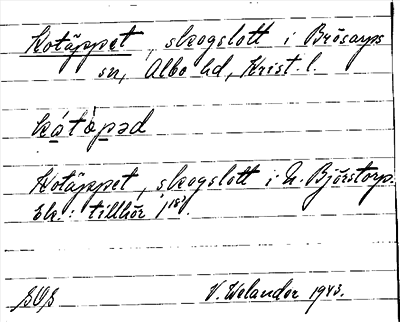 Kotäppet, skogslott i Brösarps
sn, Albo hd, Krist. l.
kátäpəd
Kotäppet, skogslott i N. Björstorp.
Ek.: tillhör 1
V. Welander 1943.